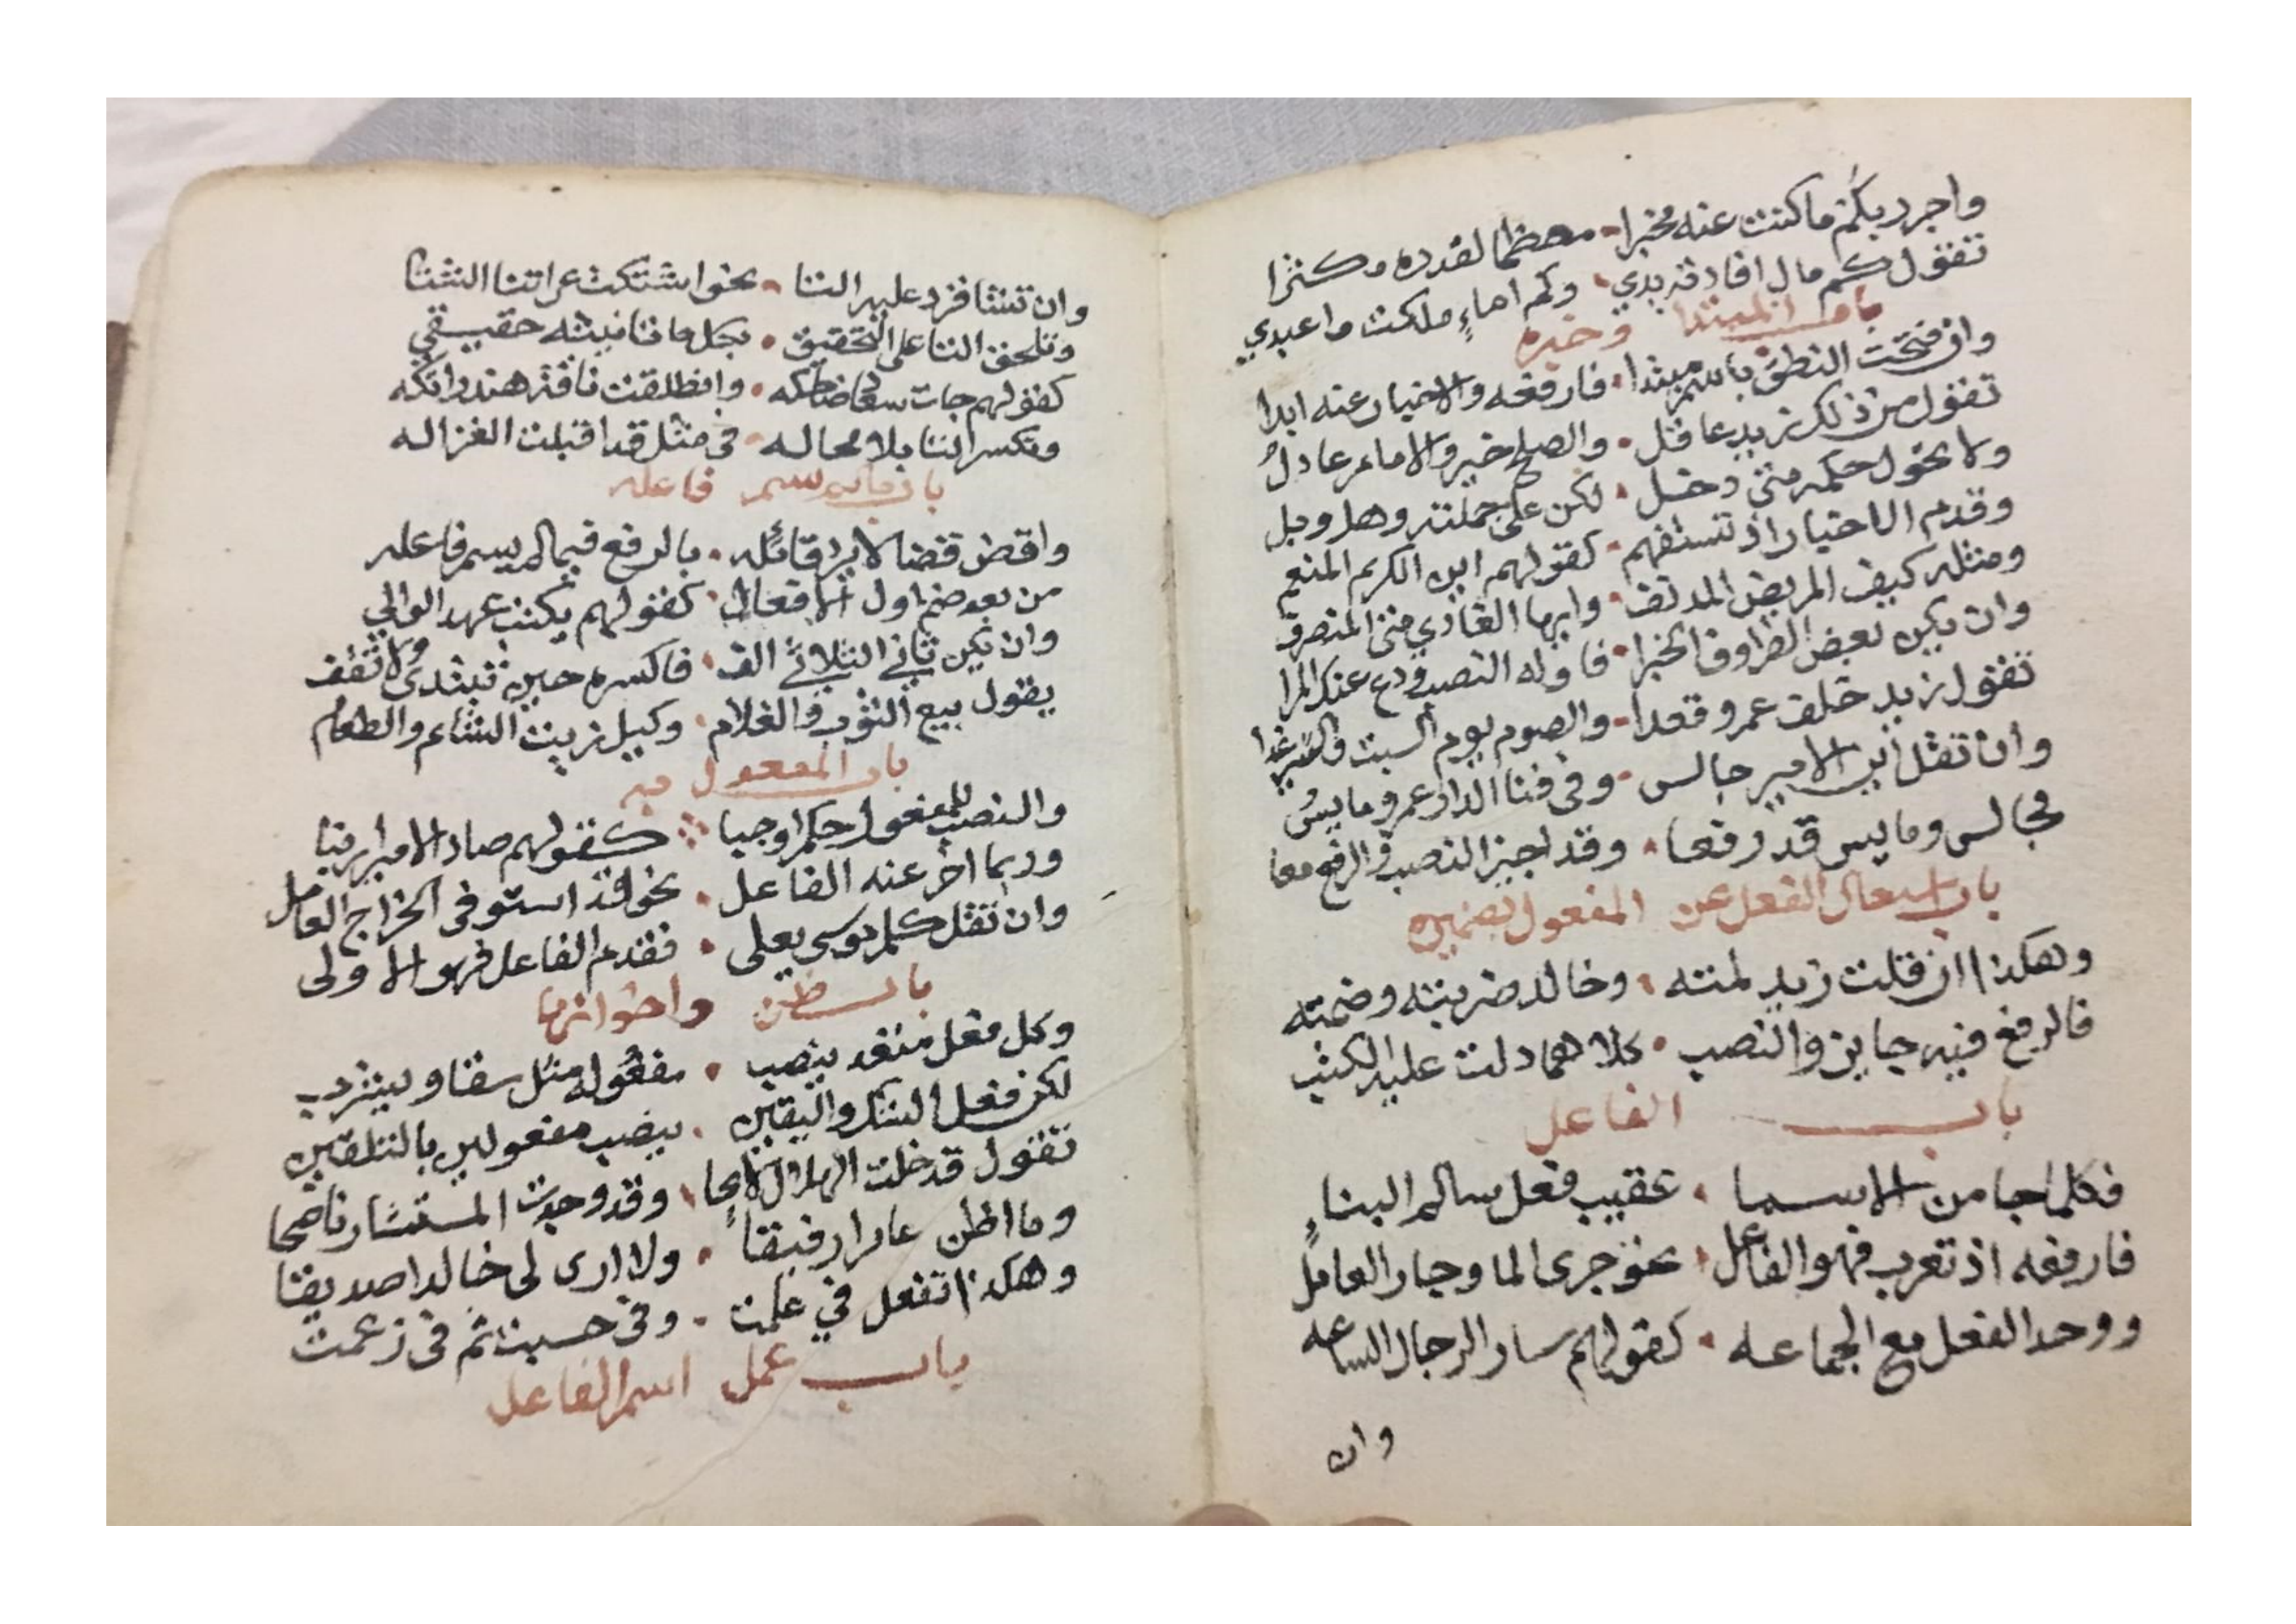 واجرر بكم ما كنت عنه مخبرا معظما لقدره مكثرا
تقول كم مال افادته يدي وكم اماءٍ ملكت واعبدي
باب المبتدا وخبره
وان فتحت النطق باسم مبتدا فارفعه والاخبار عنه ابدا
تقول من ذلك زيد عاقل والصلح خير والامام عادلُ
ولا يحول حكمه متى دخل لكن على جملته وهل وبل
وقدم الاخبار اذ تستفهم كقولهم اين الكريم المنعم
ومثله كيف المريض المدنف وايها الغادي متى المنصرف
وان يكن بعض الظروف الخبرا فاوله النصب ودع عنك المرا
تقول زيد خلف عمرو قعدا والصوم يوم السبت والسير غدا
وان تقل اين الامير جالس وفي فنا الدار عمرو مايسُ
فجالس ومايس قد رفعا وقد اجيز النصب والرفع معا
باب اشتغال الفعل عن المفعول بضميره
وهكذا ان قلت زيد لمته وخالد ضربته وضمته
فالرفع فيه جايز والنصب كلاهما دلت عليه الكتب
باب الفاعل
فكلما جا من الاسما عقيب فعل سالم البناءِ
فارفعه اذ تعرب فهو الفاعل نحو جرى الما وجار العامل
ووحد الفعل مع الجماعه كقولهم سار الرجال الساعه
وان
وان تشا فزد عليه التا نحو اشتكت عراتنا الشتا
وتلحق التا على التحقيق بكل ما تانيثه حقيقي
كقولهم جات سعاد ضاحكه وانطلقت ناقة هند راتكه
وتكسر التا بلا محاله في مثل قد اقبلت الغزاله
باب ما لم يسم فاعله
واقض قضا لا يرد قائله بالرفع فيما لم يسم فاعله
من بعد ضم اول الافعال كقولهم يكتب عهد الوالي
وان يكن ثاني الثلاثي الف فاكسره حين تبتدى ولا تقف
يقول بيع الثوب والغلام وكيل زيت الشام والطعام
باب المفعول به
والنصب للمفعول حكم اوجبا كقولهم صاد الامير ارنبا
وربما اخر عنه الفاعل نحو قد استوفى الخراج العامل
وان تقل كلم موسى يعلى فقدم الفاعل فهو الاولى
باب ظن واخواتها
وكل فعل متعد ينصب مفعوله مثل سقا ويشرب
لكن فعل الشك واليقين ينصب مفعولين بالتلقين
تقول قد خلت الهلال لايحا وقد وجدت المستشار ناصحا
وما اظن عامرا رفيقا ولا ارى لى خالدا صديقا
وهكذا تفعل في علمت وفي حسبت ثم فى زعمت
باب عمل اسم الفاعل